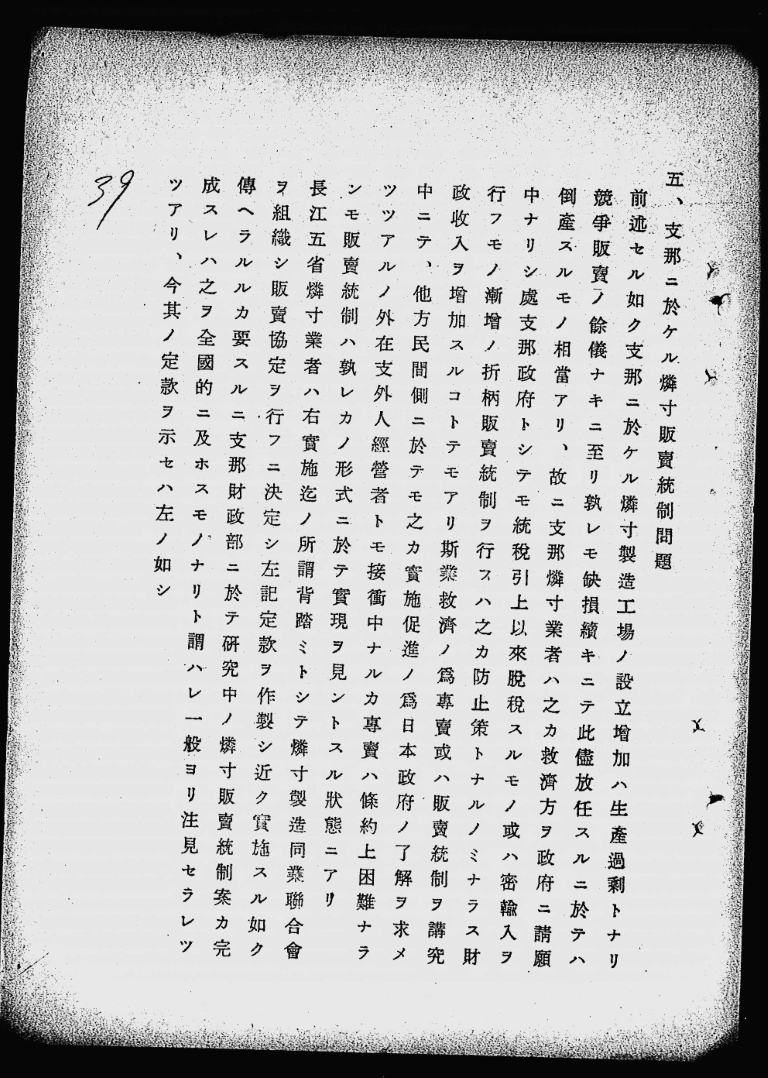 五、支那ニ於ケル燐寸販賣統制問題
前述セル如ク支那ニ於ケル燐寸製造工場ノ設立增加ハ生產過剩トナリ
競爭販賣ノ餘儀ナキニ至リ孰レモ缺損續キニテ此儘放任スルニ於テハ
倒產スルモノ相當アリ、故ニ支那燐寸業者ハ之カ救濟方ヲ政府ニ請願
中ナリシ處支那政府トシテモ統稅引上以來脫稅スルモノ或ハ密輸入ヲ
行フモノ漸增ノ折柄販賣統制ヲ行ヘハ之カ防止策トナルノミナラス財
政收入ヲ增加スルコトテモアリ斯業救濟ノ爲專賣或ハ販賣統制ヲ講究
中ニテ、他方民間側ニ於テモ之カ實施促進ノ爲日本政府ノ了解ヲ求メ
ツツアルノ外在支外人經營者トモ接衝中ナルカ專賣ハ條約上困難ナラ
ンモ販賣統制ハ孰レカノ形式ニ於テ實現ヲ見ントスル狀態ニアリ
長江五省燐寸業者ハ右實施迄ノ所謂背踏ミトシテ燐寸製造同業聯合會
ヲ組織シ販賣協定ヲ行フニ決定シ左記定款ヲ作製シ近ク實施スル如ク
傳ヘラルルカ要スルニ支那財政部ニ於テ硏究中ノ燐寸販賣統制案カ完
成スレハ之ヲ全國的ニ及ホスモノナリト謂ハレ一般ヨリ注見セラレツ
ツアリ、今其ノ定款ヲ示セハ左ノ如シ
39